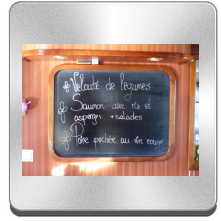 Velouté de légumes
Saumon avec ris et
asperges + salades
Poire pochée au vin rouge